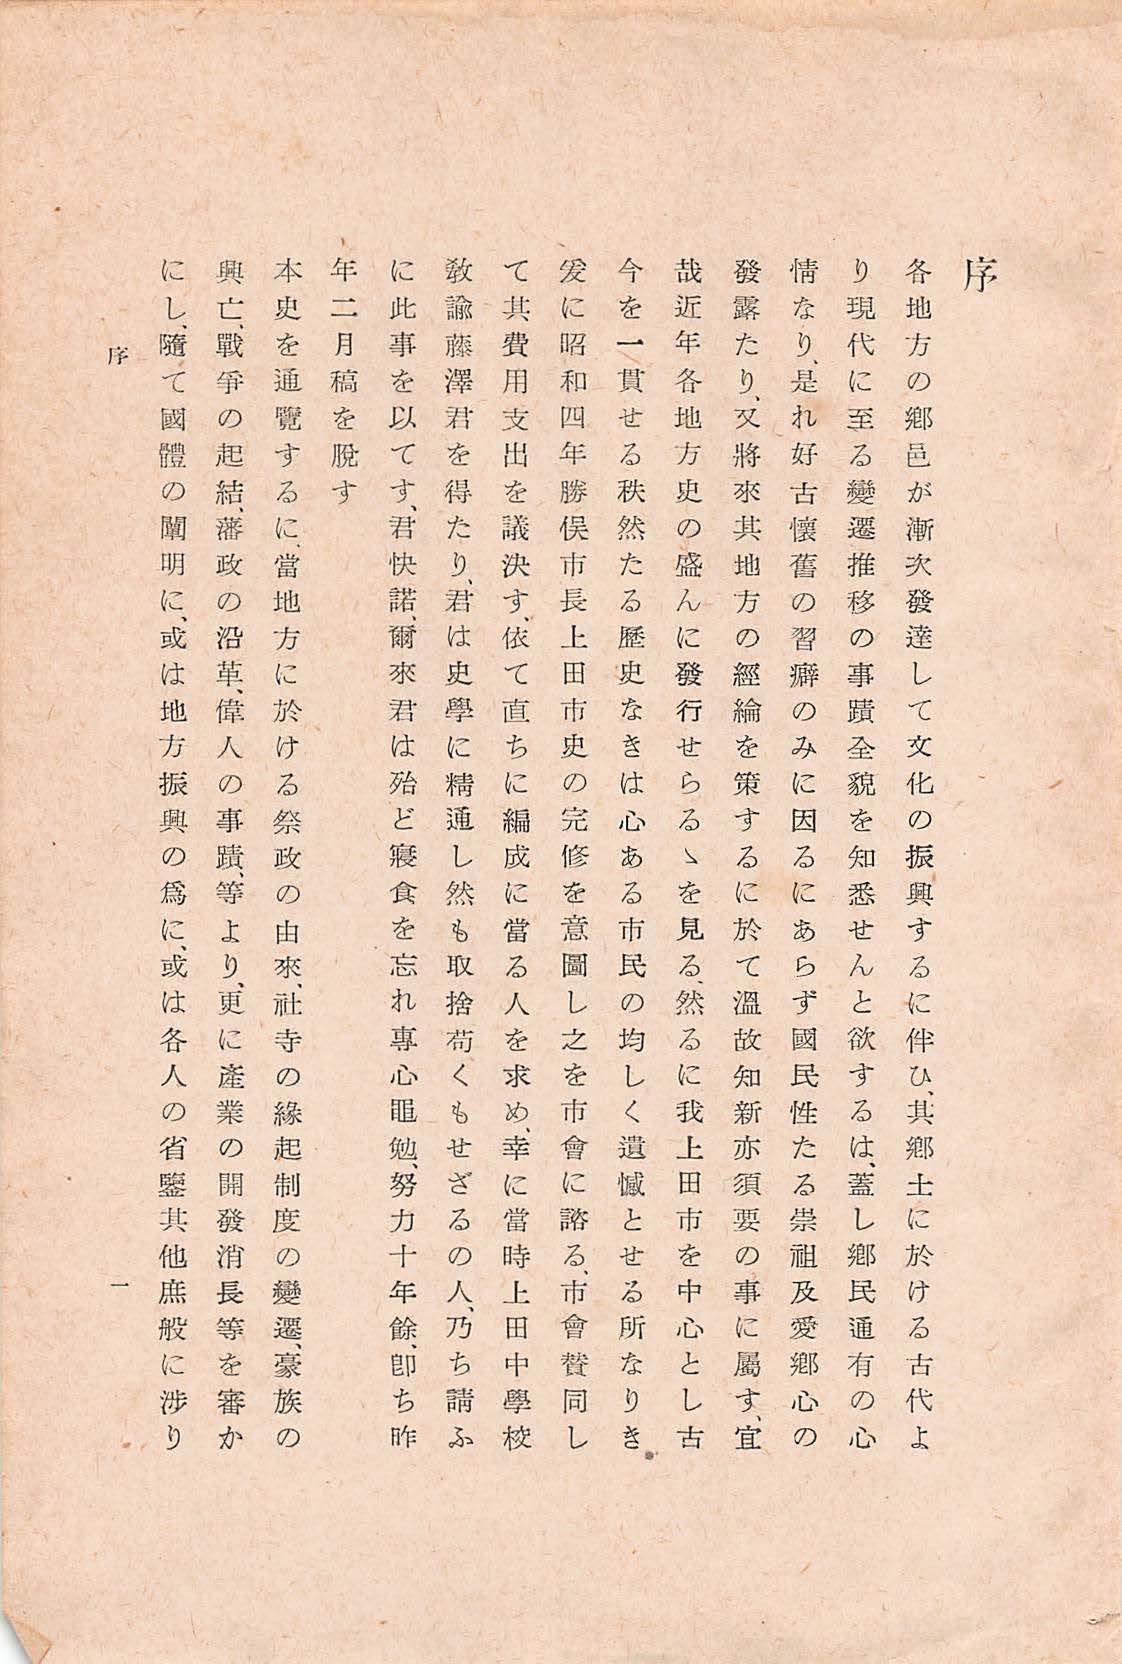 序
各地方の鄕邑が漸次發達して文化の振興するに伴ひ、其鄕土に於ける古代よ
り現代に至る變遷推移の事蹟全貌を知悉せんと欲するは、蓋し鄕民通有の心
情なり、是れ好古懷舊の習癖のみに因るにあらず國民性たる崇祖及愛鄕心の
發露たり、又將來其地方の經綸を策するに於て溫故知新亦須要の事に屬す、宜
哉近年各地方史の盛んに發行せらるゝを見る、然るに我上田市を中心とし古
今を一貫せる秩然たる歷史なきは心ある市民の均しく遺憾とせる所なりき
爰に昭和四年勝俣市長上田市史の完修を意圖し之を市會に諮る、市會贊同し
て其費用支出を議決す、依て直ちに編成に當る人を求め、幸に當時上田中學校
敎諭藤澤君を得たり、君は史學に精通し然も取捨苟くもせざるの人、乃ち請ふ
に此事を以てす、君快諾、爾來君は殆ど寢食を忘れ專心黽勉、努力十年餘、卽ち昨
年二月稿を脫す
本史を通覽するに、當地方に於ける祭政の由來、社寺の緣起制度の變遷、豪族の
興亡、戰爭の起結、藩政の沿革、偉人の事蹟、等より、更に產業の開發消長等を審か
にし、隨て國體の闡明に、或は地方振興の爲に、或は各人の省鑒其他庶般に涉り
序
一